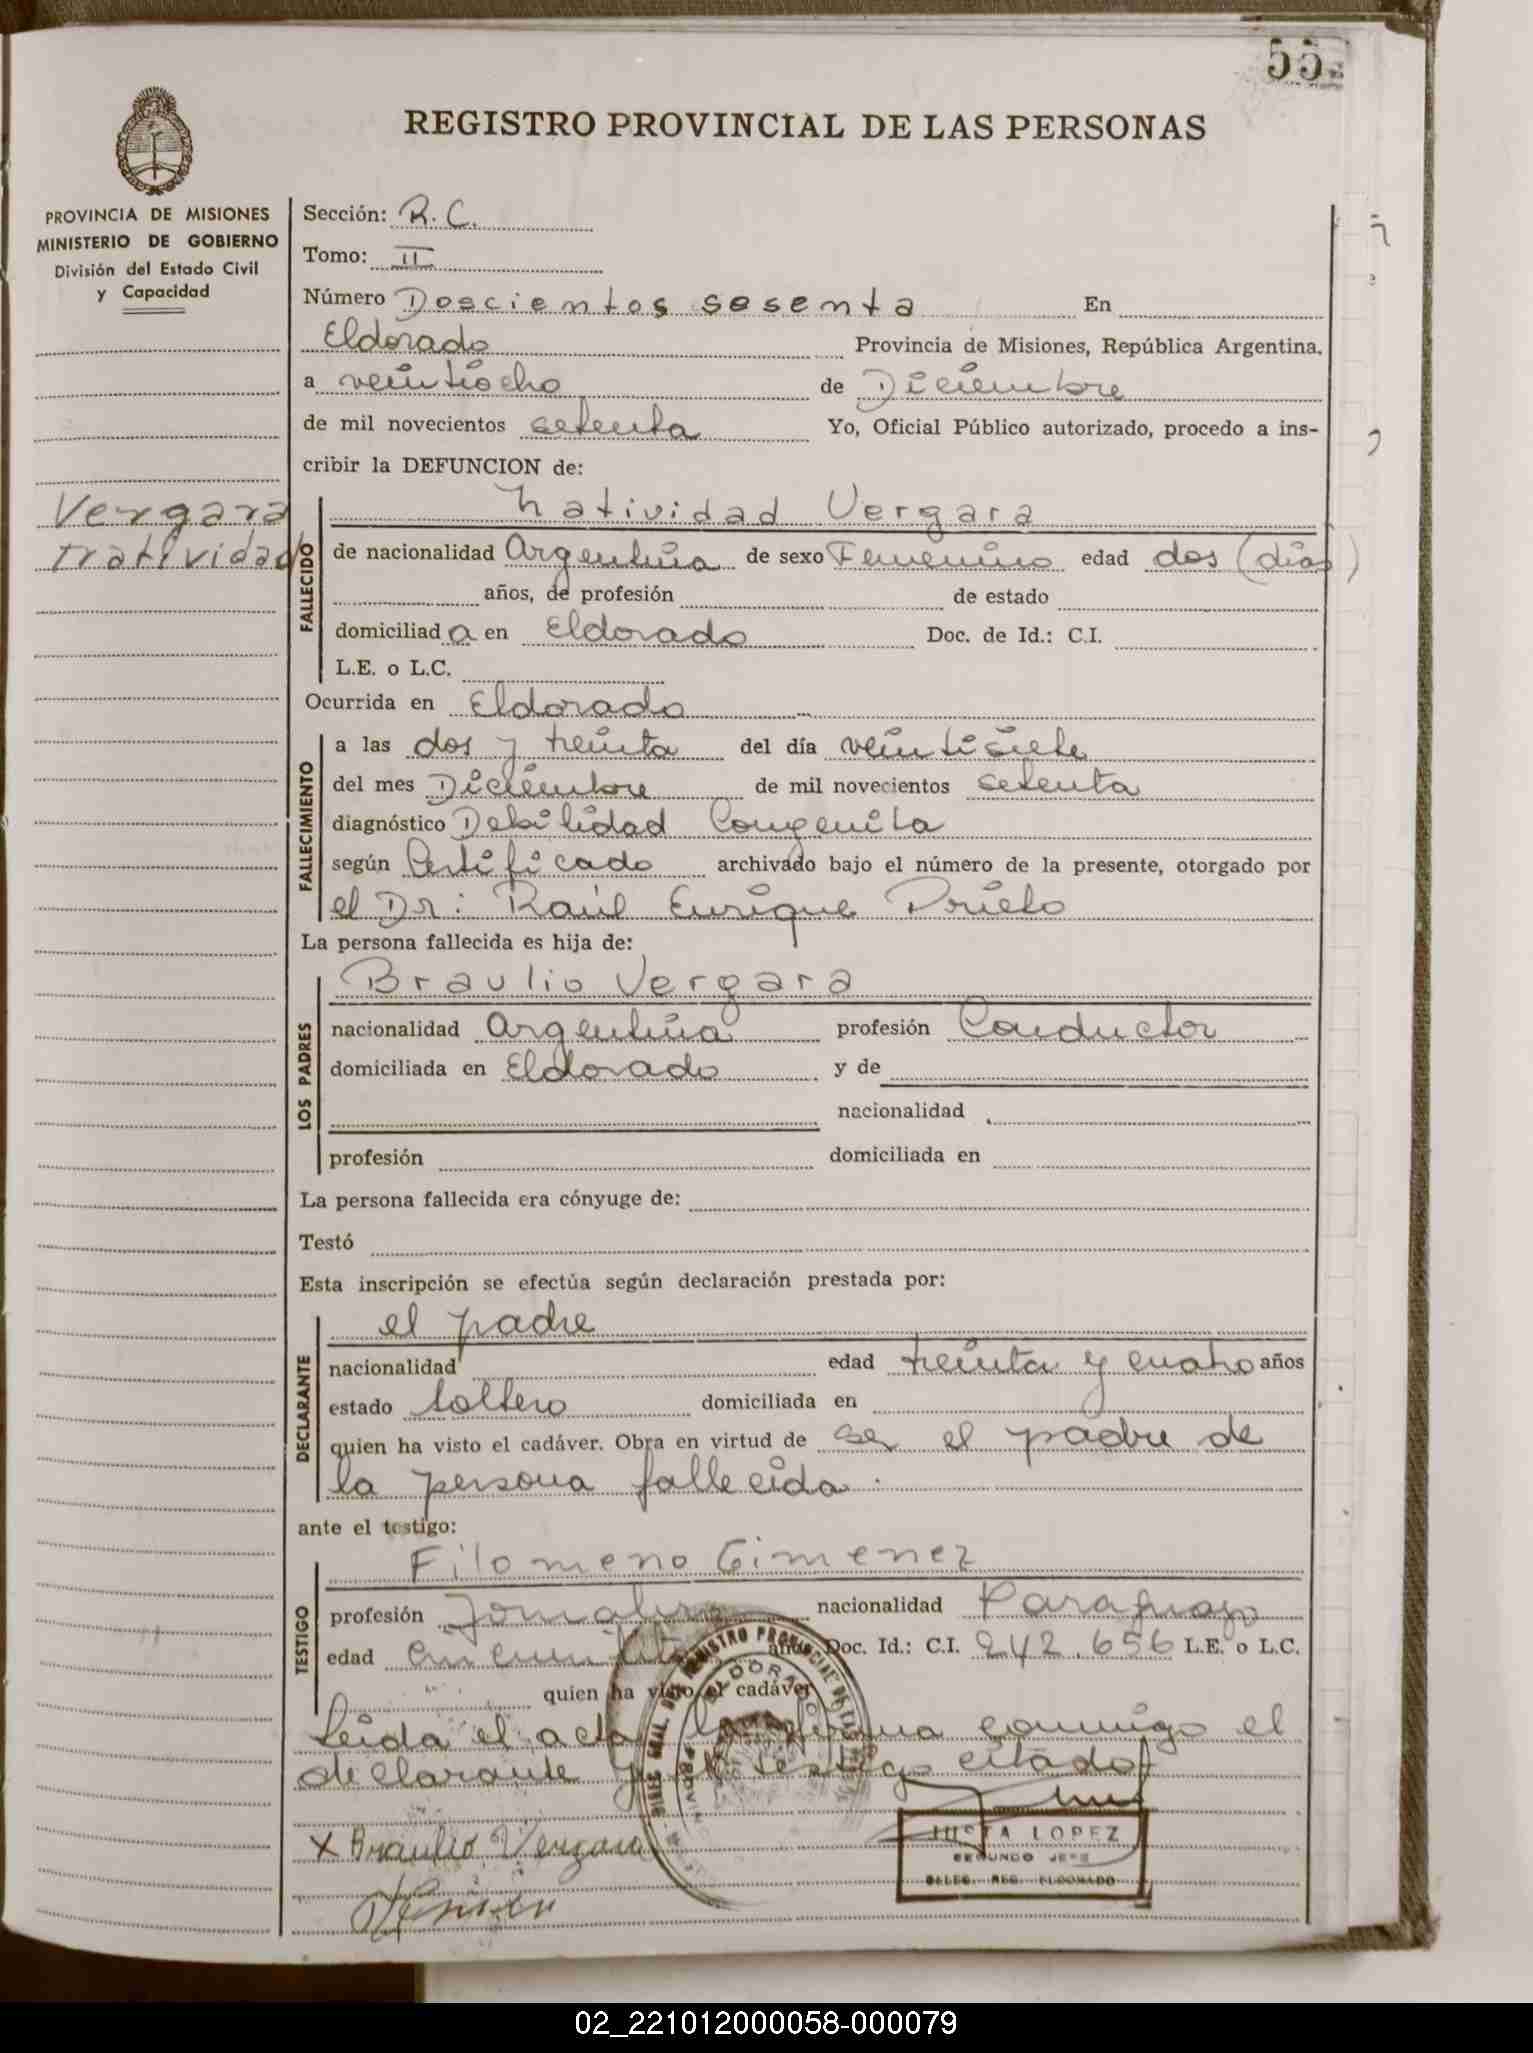 55
REGISTRO PROVINCIAL DE LAS PERSONAS
PROVINCIA DE MISIONES
MINISTERIO DE GOBIERNO
División del Estado Civil
y Capacidad
Vergara
Natividad
Sección: R. C.
Tomo: II
Número Doscientos sesenta En
Eldorado Provincia de Misiones, República Argentina,
a veintiocho de Diciembre
de mil novecientos setenta Yo, Oficial Público autorizado, procedo a ins-
cribir la DEFUNCION de:
FALLECIDO
Natividad Vergara
de nacionalidad Argentina de sexo Femenino edad dos (días)
años, de profesión de estado
domiciliada en Eldorado Doc. de Id.: C.I.
L.E. o L.C.
Ocurrida en Eldorado
FALLECIMIENTO
a las dos y treinta del día veintisiete
del mes Diciembre de mil novecientos setenta
diagnóstico Debilidad Congenita
según Certificado archivado bajo el número de la presente, otorgado por
el Dr: Raúl Enrique Prieto
La persona fallecida es hija de:
LOS PADRES
Braulio Vergara
nacionalidad Argentina profesión Conductor
domiciliada en Eldorado y de
nacionalidad
profesión domiciliada en
La persona fallecida era cónyuge de:
Testó
Esta inscripción se efectúa según declaración prestada por:
DECLARANTE
el padre
nacionalidad edad treinta y cuatro años
estado soltero domiciliada en
quien ha visto el cadáver. Obra en virtud de ser el padre de
la persona fallecida.
ante el testigo:
TESTIGO
Filomeno Gimenez
profesión Jornalero nacionalidad Paraguayo
edad cincuenta años Doc. Id.: C.I. 242.656 L.E. o L.C.
quien ha visto el cadáver
Leida el acta la firma conmigo el
declarante y el testigo citado
X Braulio Vergara
JUSTA LOPEZ
SEGUNDO JEFE
DELEG. REG. ELDORADO
02_221012000058-000079